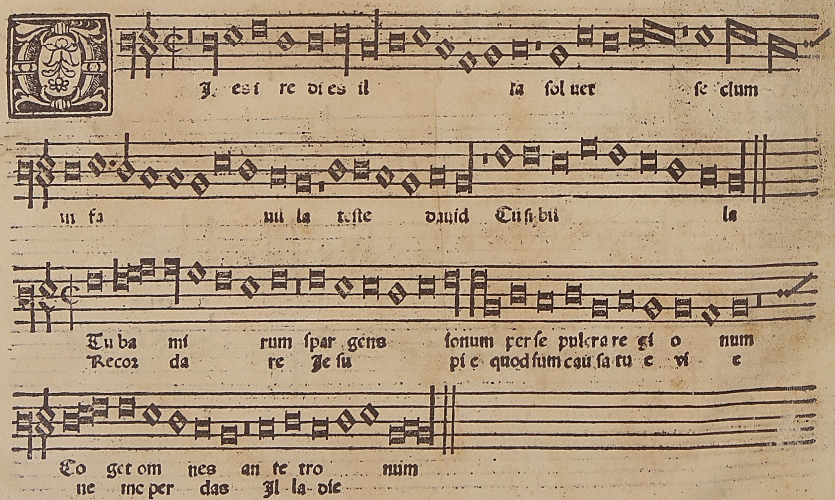 Di es i re di es il la sol uet se clum
in fa uil la teste dauid Cū si bil la
Tu ba mi rum spar gens sonum per se pulcra re gi o num
Recor da re Je su pi e quod sum cau sa tu e vi e
Co get om nes an te tro num
ne me per das Il la die